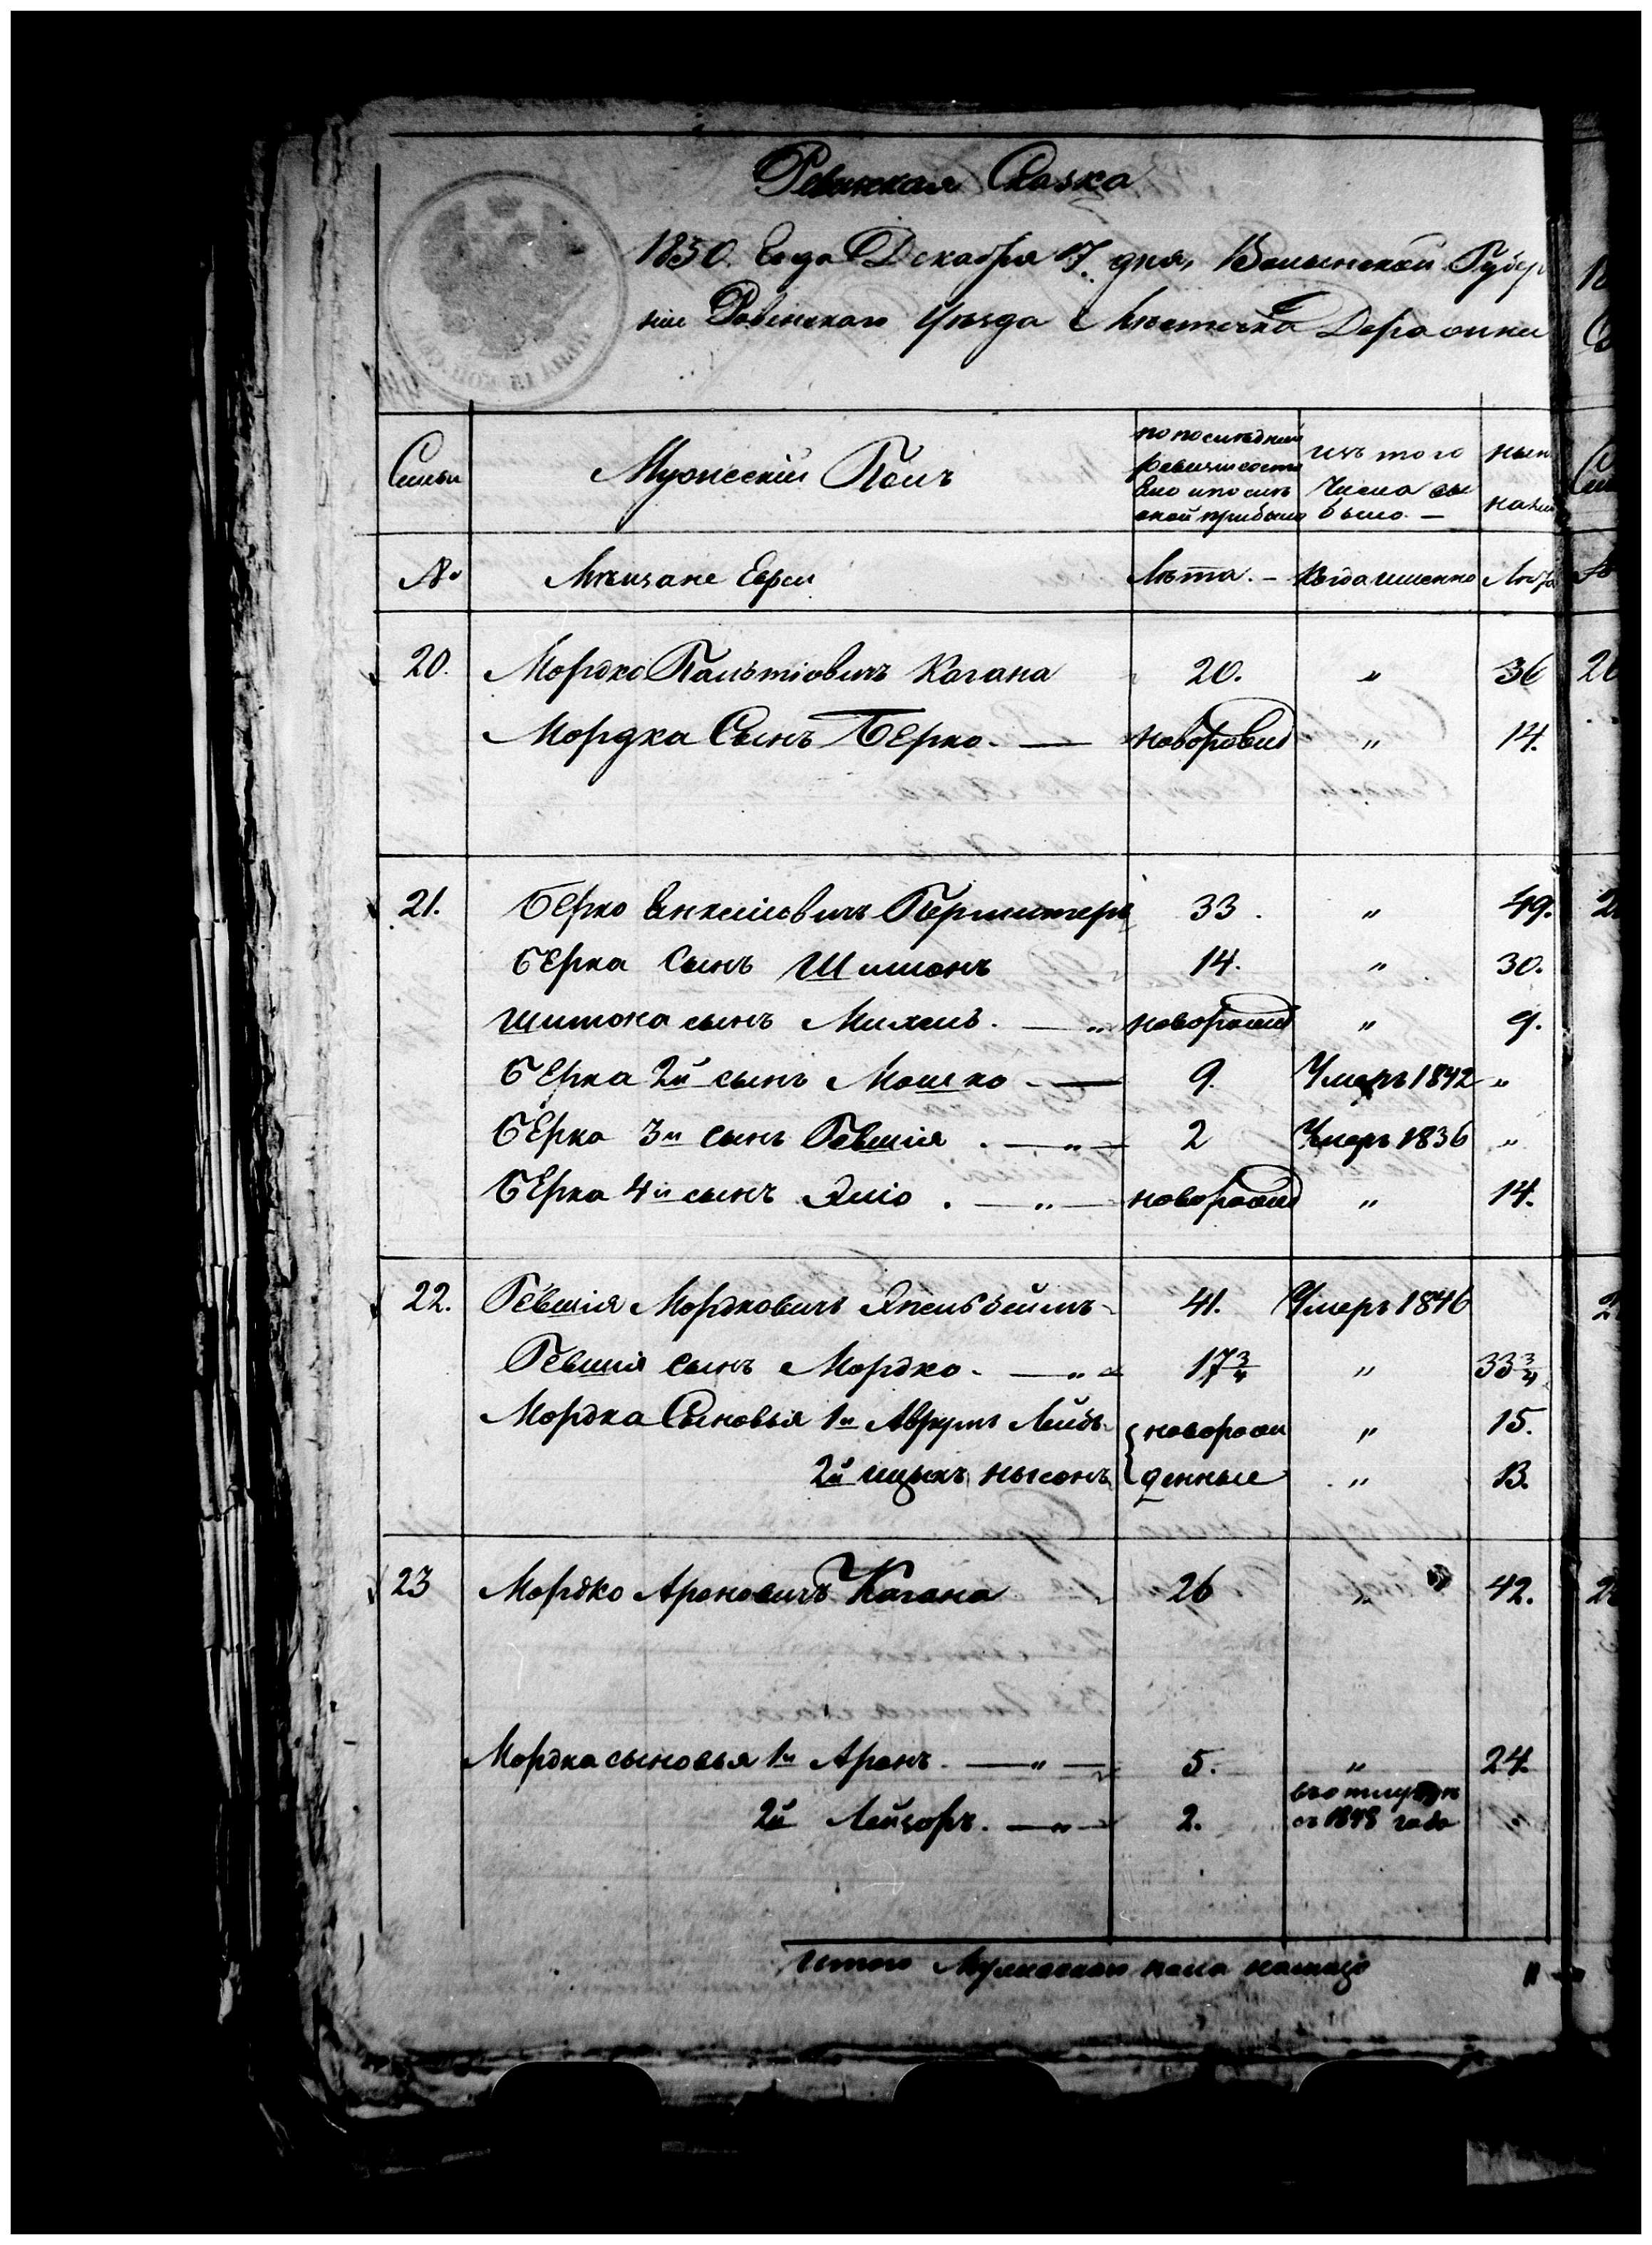 Ревижская Сказка
1850. Года Декабря 7. дня, Волынской Губер
ніи Ровенскаго Уѣзда Мѣстечка Деражни
Семьи
Мужескій Полъ
по послѣдней
ревизіи состо
яло и после
оной прибыло
изъ того
числа вы
было. —
нын
на ли
№
Мѣщане Евреи
Лѣта. —
Когда именно
Лѣта
20.
Мордко Пальтіовичъ Кагана
20.
"
36
Мордка Сынъ Берко. —
новорожд
"
14.
21.
Берко
33.
"
49.
Берка Сынъ Шимонъ
14.
"
30.
Шимона сынъ Михель. — "
новорожд
"
9.
Берка 2й сынъ Мошко —
9.
Умеръ 1842
"
Берка 3й сынъ Гевшія. — " —
2
Умеръ 1836
"
Берка 4й сынъ Яшіо. — " —
новорожд
"
14.
22.
Гевшія Мордковичъ
41.
Умеръ 1846
Гевшія сынъ Мордко. — "
17 3/4
"
33 3/4
Мордка Сыновья 1й Аврумъ Лейбъ
новорож
"
15.
2й Ицыкъ Нысонъ
денные
"
13.
23
Мордко Ароновичъ Кагана
26
"
42.
Мордка сыновья 1й Аронъ. — " —
5.
"
24.
2й Лейзоръ. — " —
2.
въ
съ 1848 года
Итого Мужескаго пола налицо
11